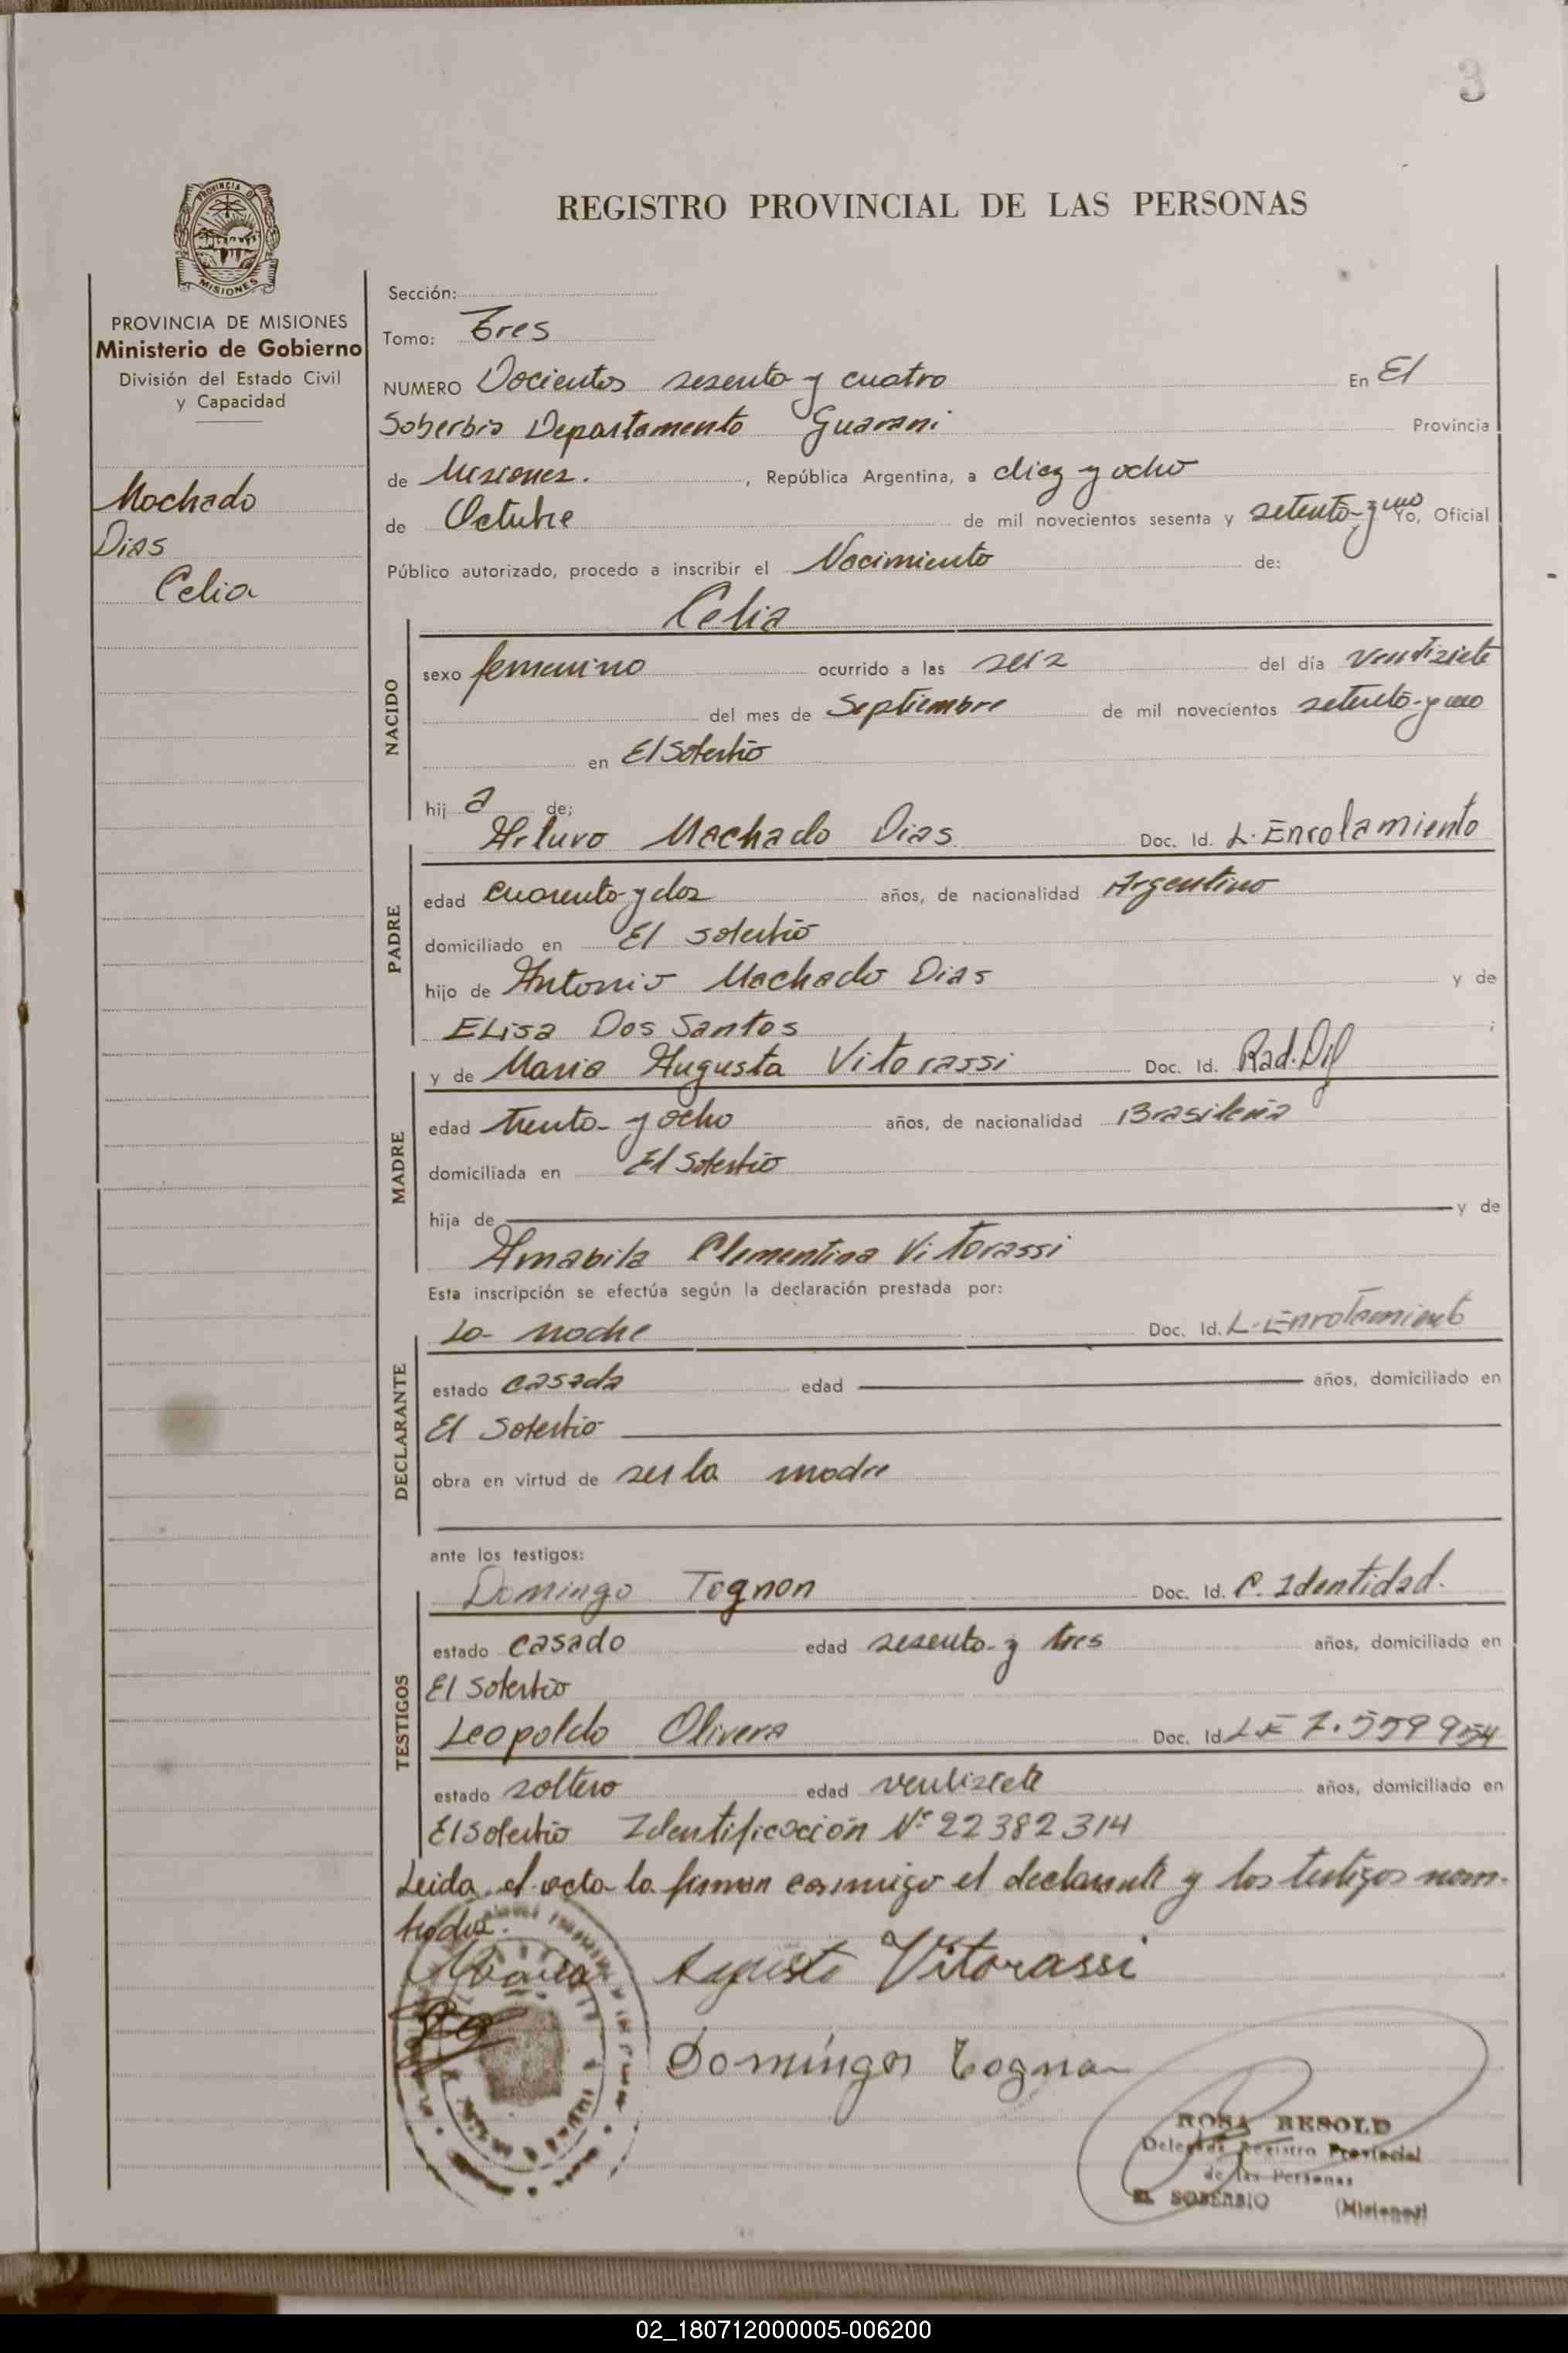 3
PROVINCIA DE
MISIONES
REGISTRO PROVINCIAL DE LAS PERSONAS
PROVINCIA DE MISIONES
Ministerio de Gobierno
División del Estado Civil
y Capacidad
Machado
Dias
Celia
Sección:
Tomo: Tres
NUMERO Docientos sesenta y cuatro En El
Soberbio Departamento Guarani Provincia
de Misiones. , República Argentina, a diez y ocho
de Octubre de mil novecientos sesenta y setenta y uno Yo, Oficial
Público autorizado, procedo a inscribir el Nacimiento de:
Celia
NACIDO
sexo femenino ocurrido a las seis del día veintisiete
del mes de Septiembre de mil novecientos setenta y uno
en El Soberbio
hij a de;
Arturo Machado Dias Doc. Id. L. Enrolamiento
PADRE
edad cuarenta y dos años, de nacionalidad Argentino
domiciliado en El Soberbio
hijo de Antonio Machado Dias y de
Elisa Dos Santos ;
y de Maria Augusta Vitorassi Doc. Id. Rad. Dif
MADRE
edad treinta y ocho años, de nacionalidad Brasileña
domiciliada en El Soberbio
hija de y de
Amabila Clementina Vitorassi
Esta inscripción se efectúa según la declaración prestada por:
La madre Doc. Id. L. Enrolamiento
DECLARANTE
estado casada edad años, domiciliado en
El Soberbio
obra en virtud de ser la madre
ante los testigos:
Domingo Tognon Doc. Id. C. Identidad.
TESTIGOS
estado casado edad sesenta y tres años, domiciliado en
El Soberbio
Leopoldo Olivera Doc. Id. LE 7.559954
estado soltero edad veintisiete años, domiciliado en
El Soberbio Identificación Nº 22382314
Leida el acta la firman conmigo el declarante y los testigos nom-
brados.
Maria Agusta Vitorassi
Domingos Tognon
ROSA RESOLD
Delegada Registro Provincial
de las Personas
EL SOBERBIO (Misiones)
02_180712000005-006200